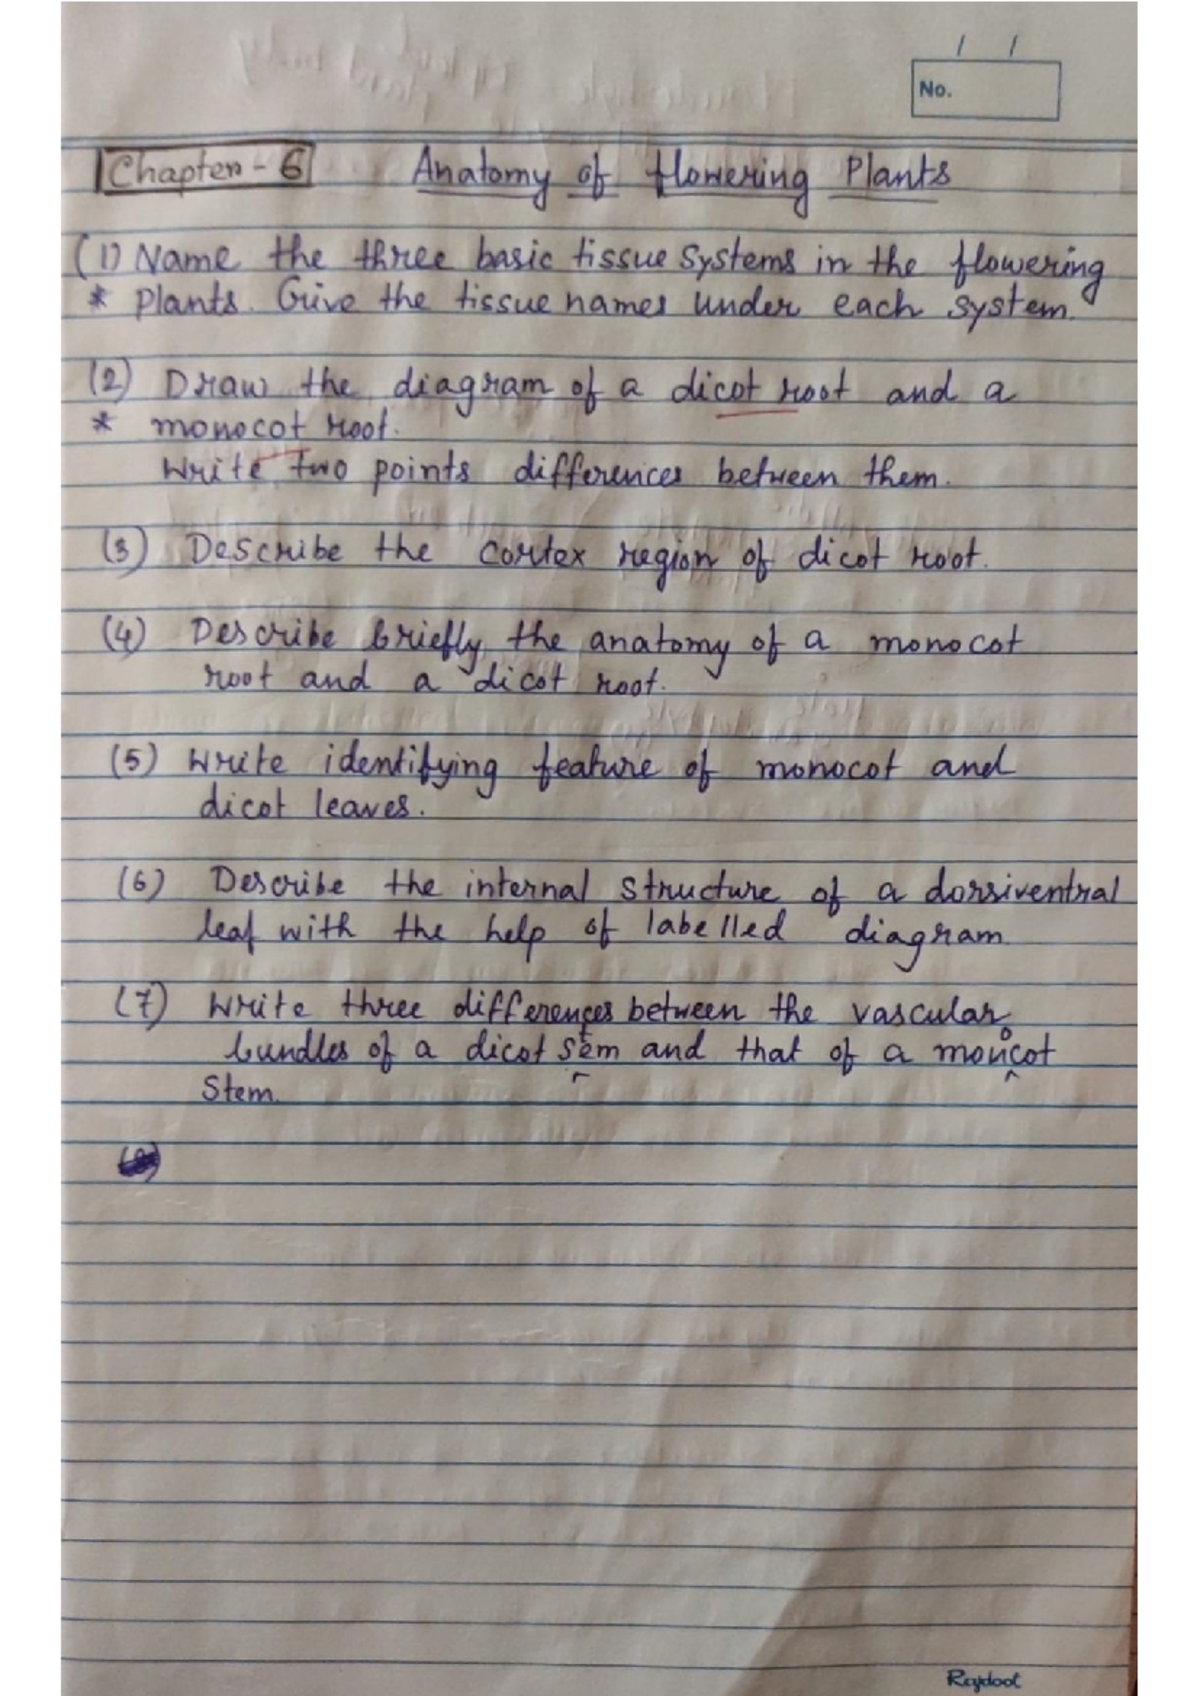 No.
Chapter - 6 Anatomy of flowering Plants
(1) Name the three basic tissue systems in the flowering
* plants. Give the tissue names under each system.
(2) Draw the diagram of a dicot root and a
* monocot root.
Write two points differences between them.
(3) Describe the cortex region of dicot root.
(4) Describe briefly the anatomy of a monocot
root and a dicot root.
(5) Write identifying feature of monocot and
dicot leaves.
(6) Describe the internal structure of a dorsiventral
leaf with the help of labelled diagram
(7) Write three differences between the vascular
bundles of a dicot stem and that of a monocot
Stem.